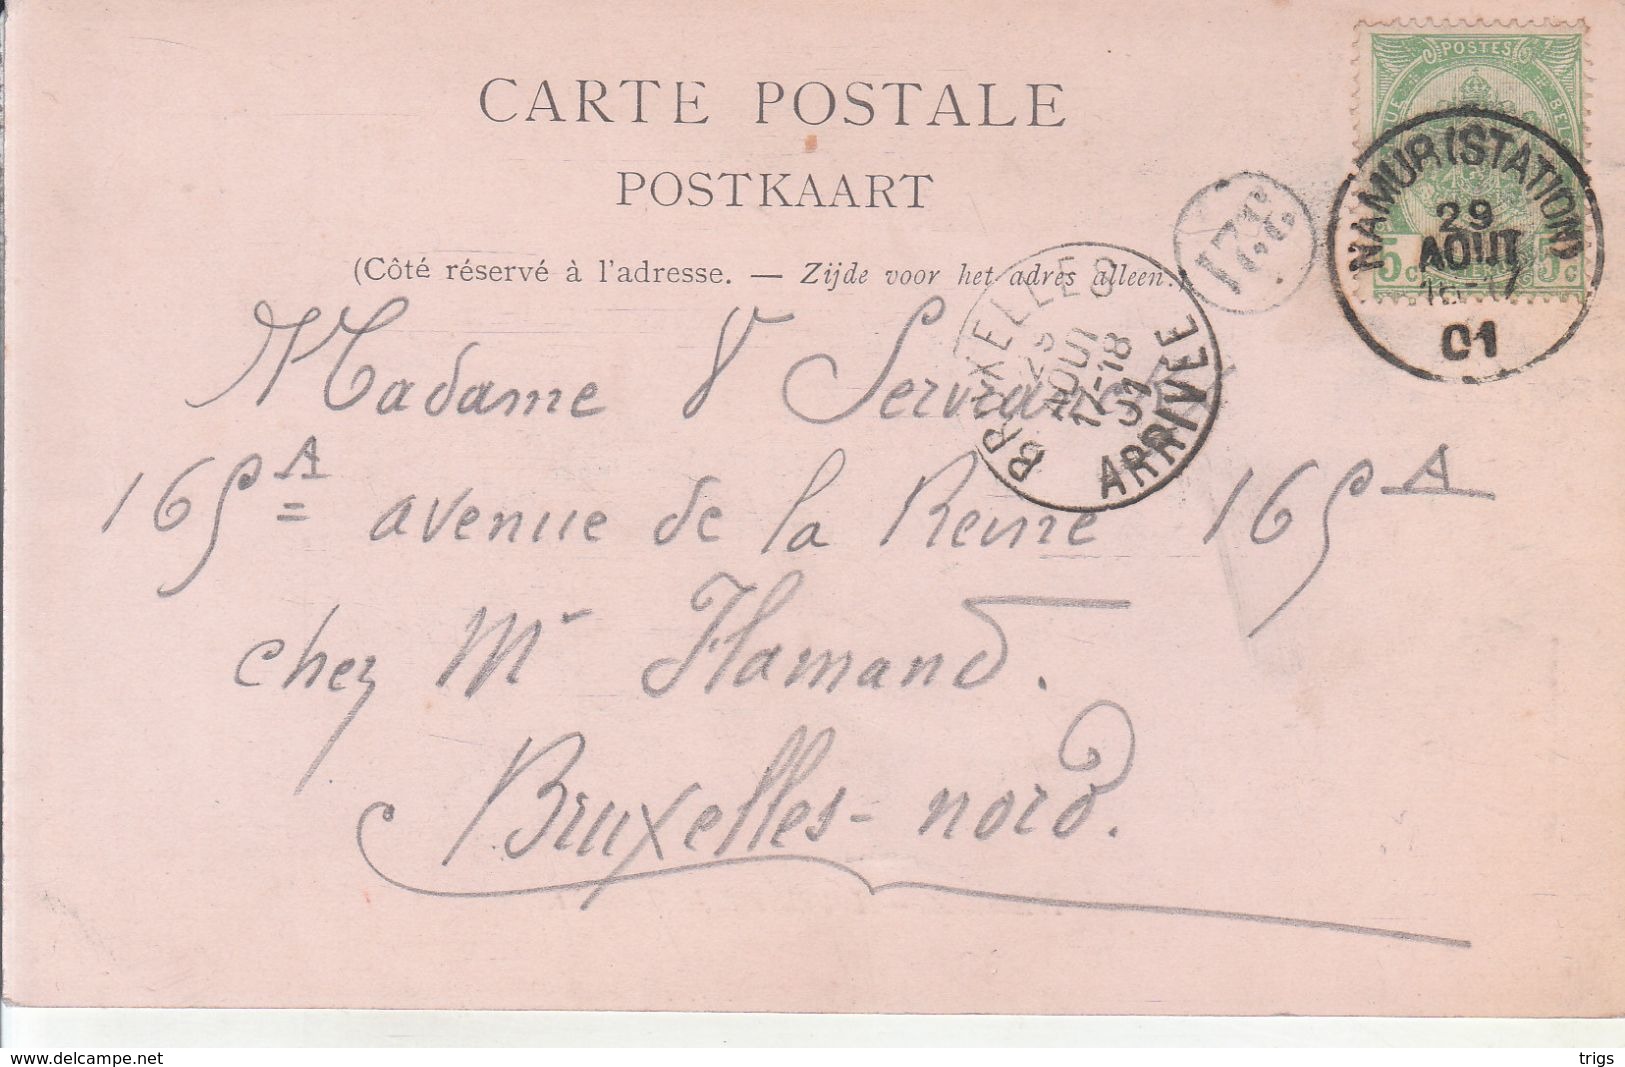 CARTE POSTALE
POSTKAART
(Côté réservé à l'adresse. — Zijde voor het adres alleen.)
POSTES
5c 5c
NAMUR (STATION)
29
AOUT
01
BRUXELLES
AOUT
17-18
01
ARRIVEE
Madame V Servranck
165A avenue de la Reine 165A
chez Mr Flamand.
Bruxelles-nord.
www.delcampe.net
trigs